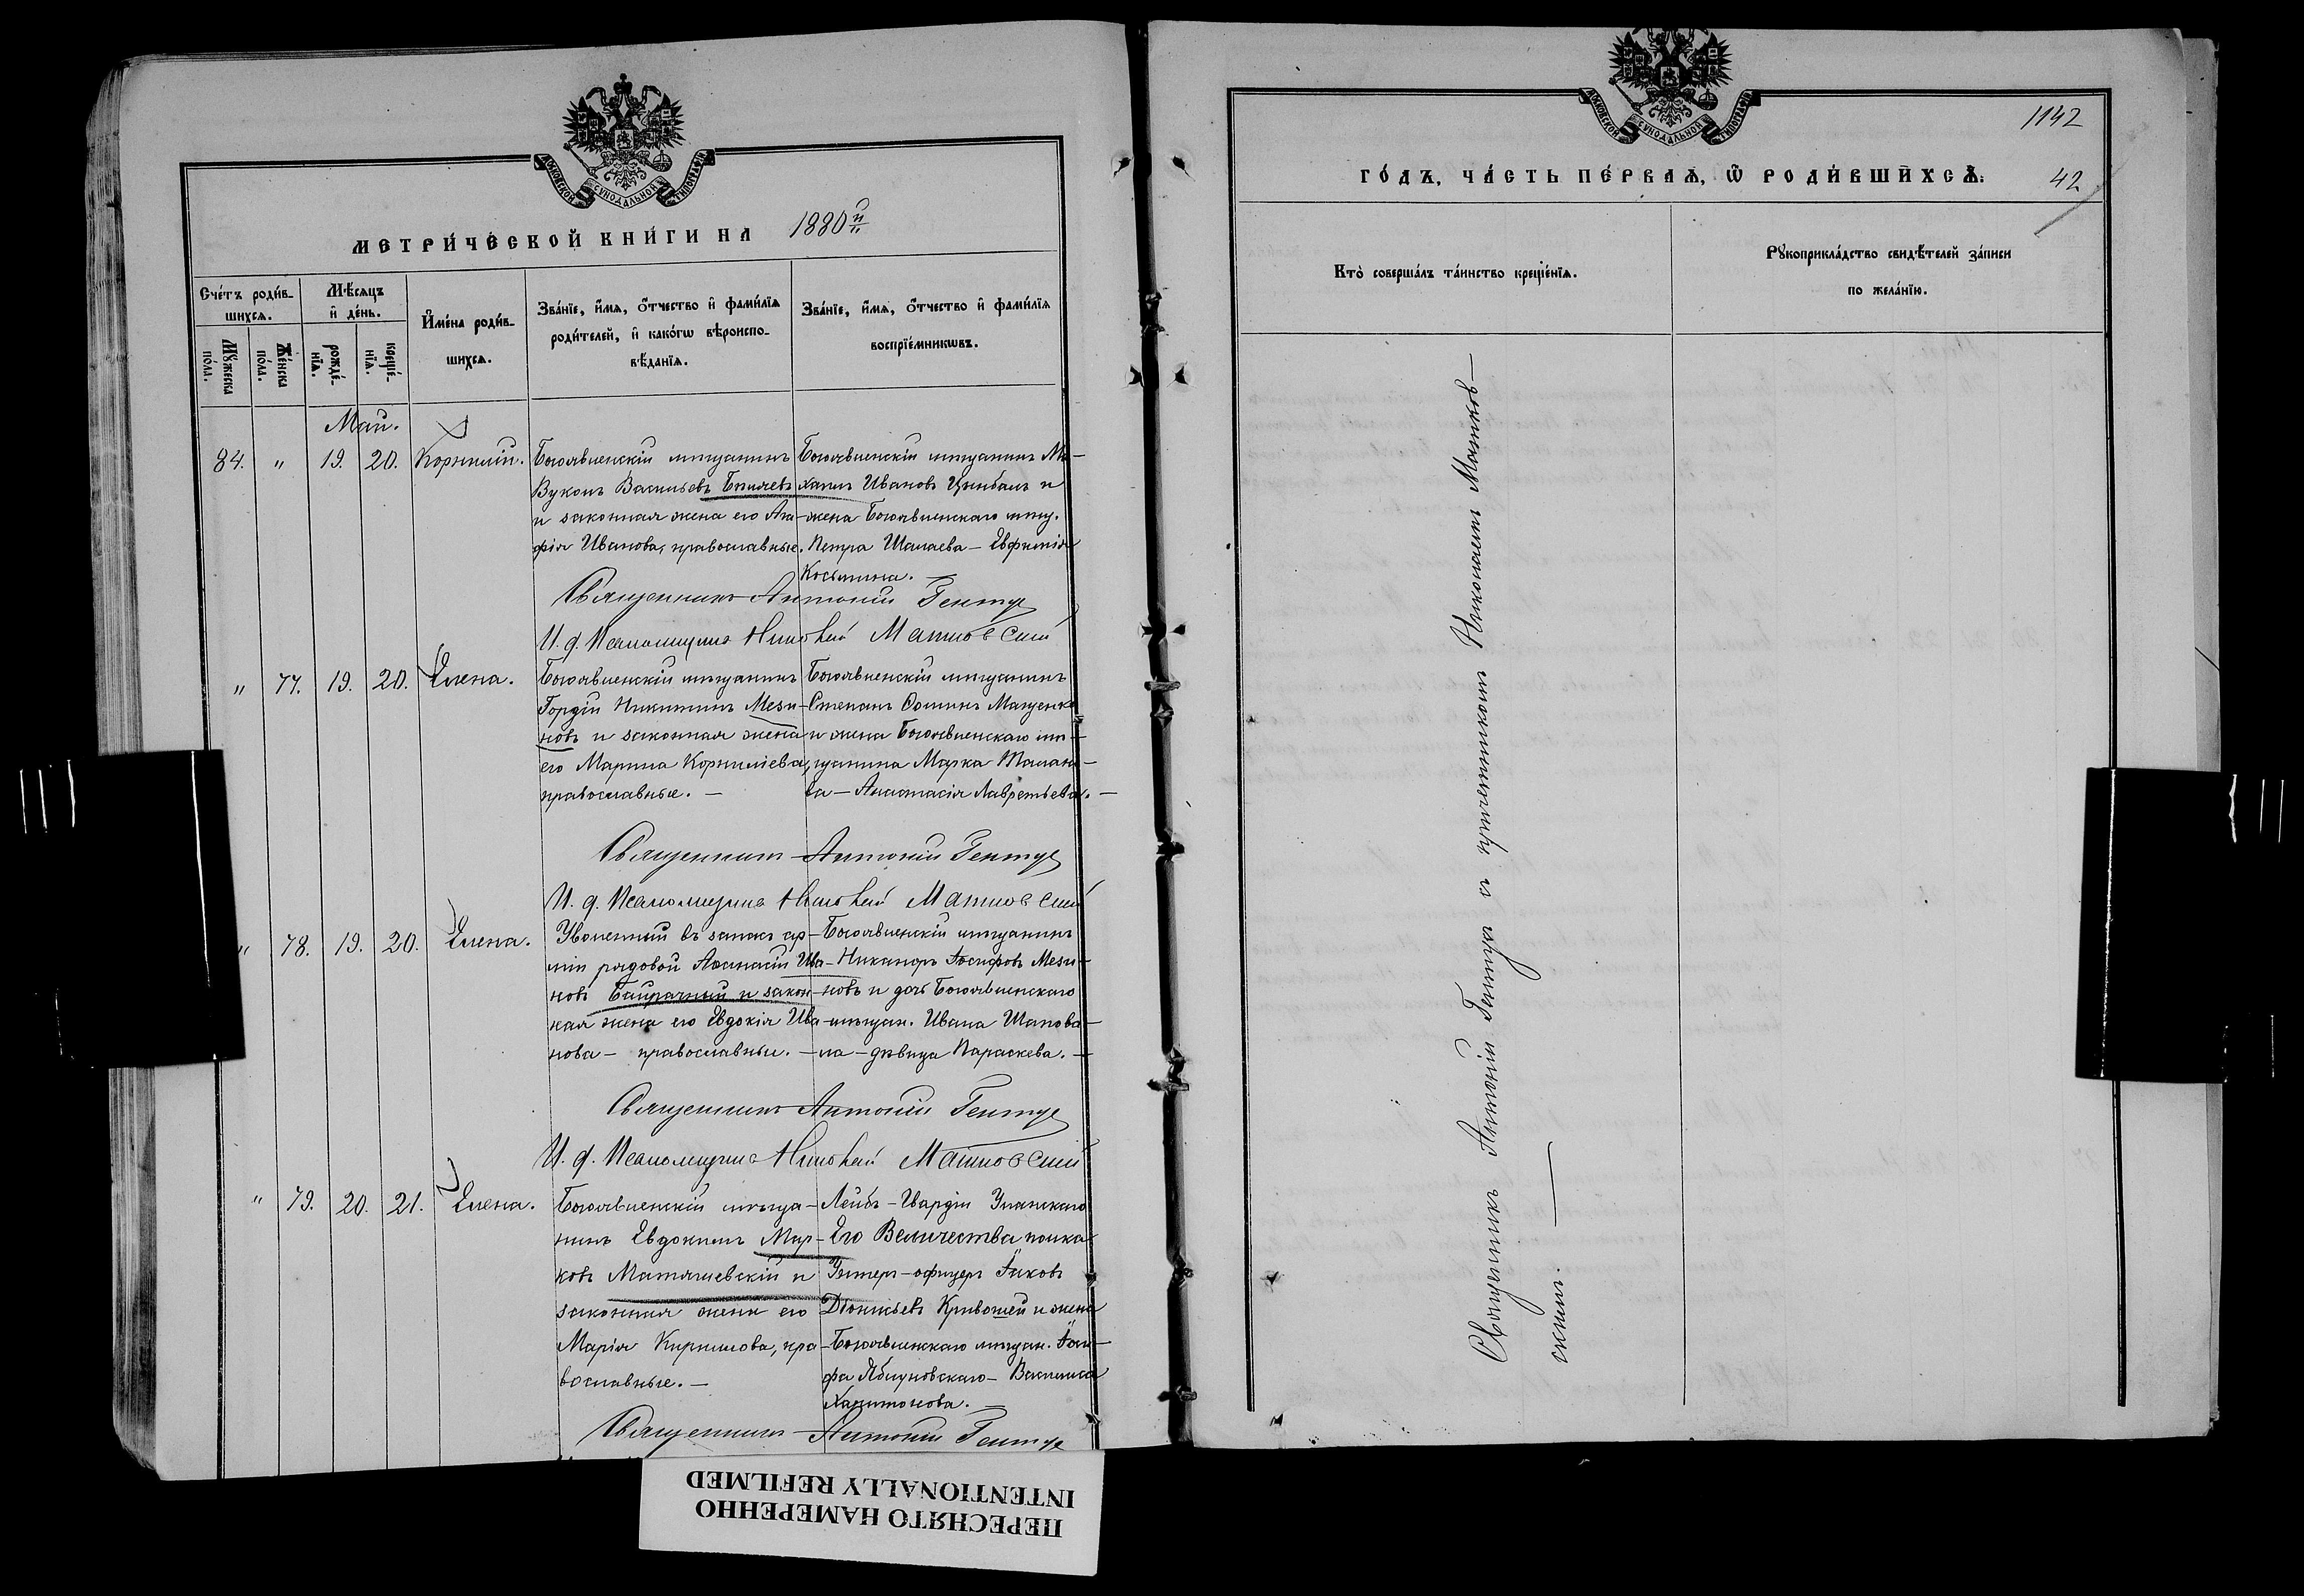 МОСКОВСКОЙ СУНОДАЛЬНОЙ ТИПОГРАФІИ
МЕТРИ́ЧЕСКОЙ КНИ́ГИ НА 1880й
Сче́тъ роди́в-
шихсѧ.
Мѣ́сѧцъ
и҆ де́нь.
И҆мена̀ роди́в-
шихсѧ.
Зва́нїе, и҆́мѧ, ѻ҆́тчество и҆ фами́лїѧ
роди́телей, и҆ како́гѡ вѣроиспо-
вѣ́данїѧ.
Зва́нїе, и҆́мѧ, ѻ҆́тчество и҆ фами́лїѧ
воспрїе́мникѡвъ.
Мꙋ́жеска
по́ла.
Же́нска
по́ла.
рожде́-
нїѧ.
креще́-
нїѧ.
Май.
84. " 19. 20. Корнилій.
Богоявленскій мѣщанинъ
Вуколъ Васильевъ Бѣляевъ
и законная жена его Ага-
фія Иванова, православные.
Богоявленскій мѣщанинъ Ми-
хаилъ Ивановъ Цымбалъ и
жена Богоявленскаго мѣщ.
Петра Шалаева – Евфимія
Косьмина. –
Священникъ Антоній Гентуе
И. д. Псаломщика Николай Матковский
" 77. 19. 20. Елена.
Богоявленскій мѣщанинъ
Гордій Никитинъ Мези-
новъ и законная жена
его Марина Корнилієва,
православные. –
Богоявленскій мѣщанинъ
Степанъ Ѳоминъ Мащенко
и жена Богоявленскаго мѣ-
щанина Марка Талано-
ва – Анастасія Лаврентьева. –
Священникъ Антоній Гентуе
И. д. Псаломщика Николай Матковский
" 78. 19. 20. Елена.
Уволенный въ запасъ ар-
міи рядовой Аѳанасій Ива-
новъ Байрачный и закон-
ная жена его Евдокія Ива-
нова – православные. –
Богоявленскій мѣщанинъ
Никаноръ Іосифовъ Мези-
новъ и дочь Богоявленскаго
мѣщан. Ивана Шапова-
ла – дѣвица Параскева. –
Священникъ Антоній Гентуе
И. д. Псаломщика Николай Матковский
" 79. 20. 21. Елена.
Богоявленскій мѣща-
нинъ Евдокимъ Мар-
ковъ Матяшевскій и
законная жена его
Марія Кириллова, пра-
вославные. –
Лейбъ-Гвардіи Уланскаго
Его Величества полка
Унтеръ-офицеръ Іаковъ
Діонисьевъ Кривошей и жена
Богоявленскаго мѣщан. Іоси-
фа Яблуновскаго – Василиса
Харитонова. –
Священникъ Антоній Гентуе
МОСКОВСКОЙ СУНОДАЛЬНОЙ ТИПОГРАФІИ
1142
ГО́ДЪ, ЧА́СТЬ ПЕ́РВАѦ, Ѿ РОДИ́ВШИХСѦ.
42
Кто̀ соверша́лъ та́инство креще́нїѧ.
Рꙋкоприкла́дство свидѣ́телей за́писи
по жела́нїю.
Священникъ Антоній Гентуе съ причетникомъ Николаемъ Матков-
скимъ. –
ПЕРЕСНЯТО НАМЕРЕННО
INTENTIONALLY REFILMED